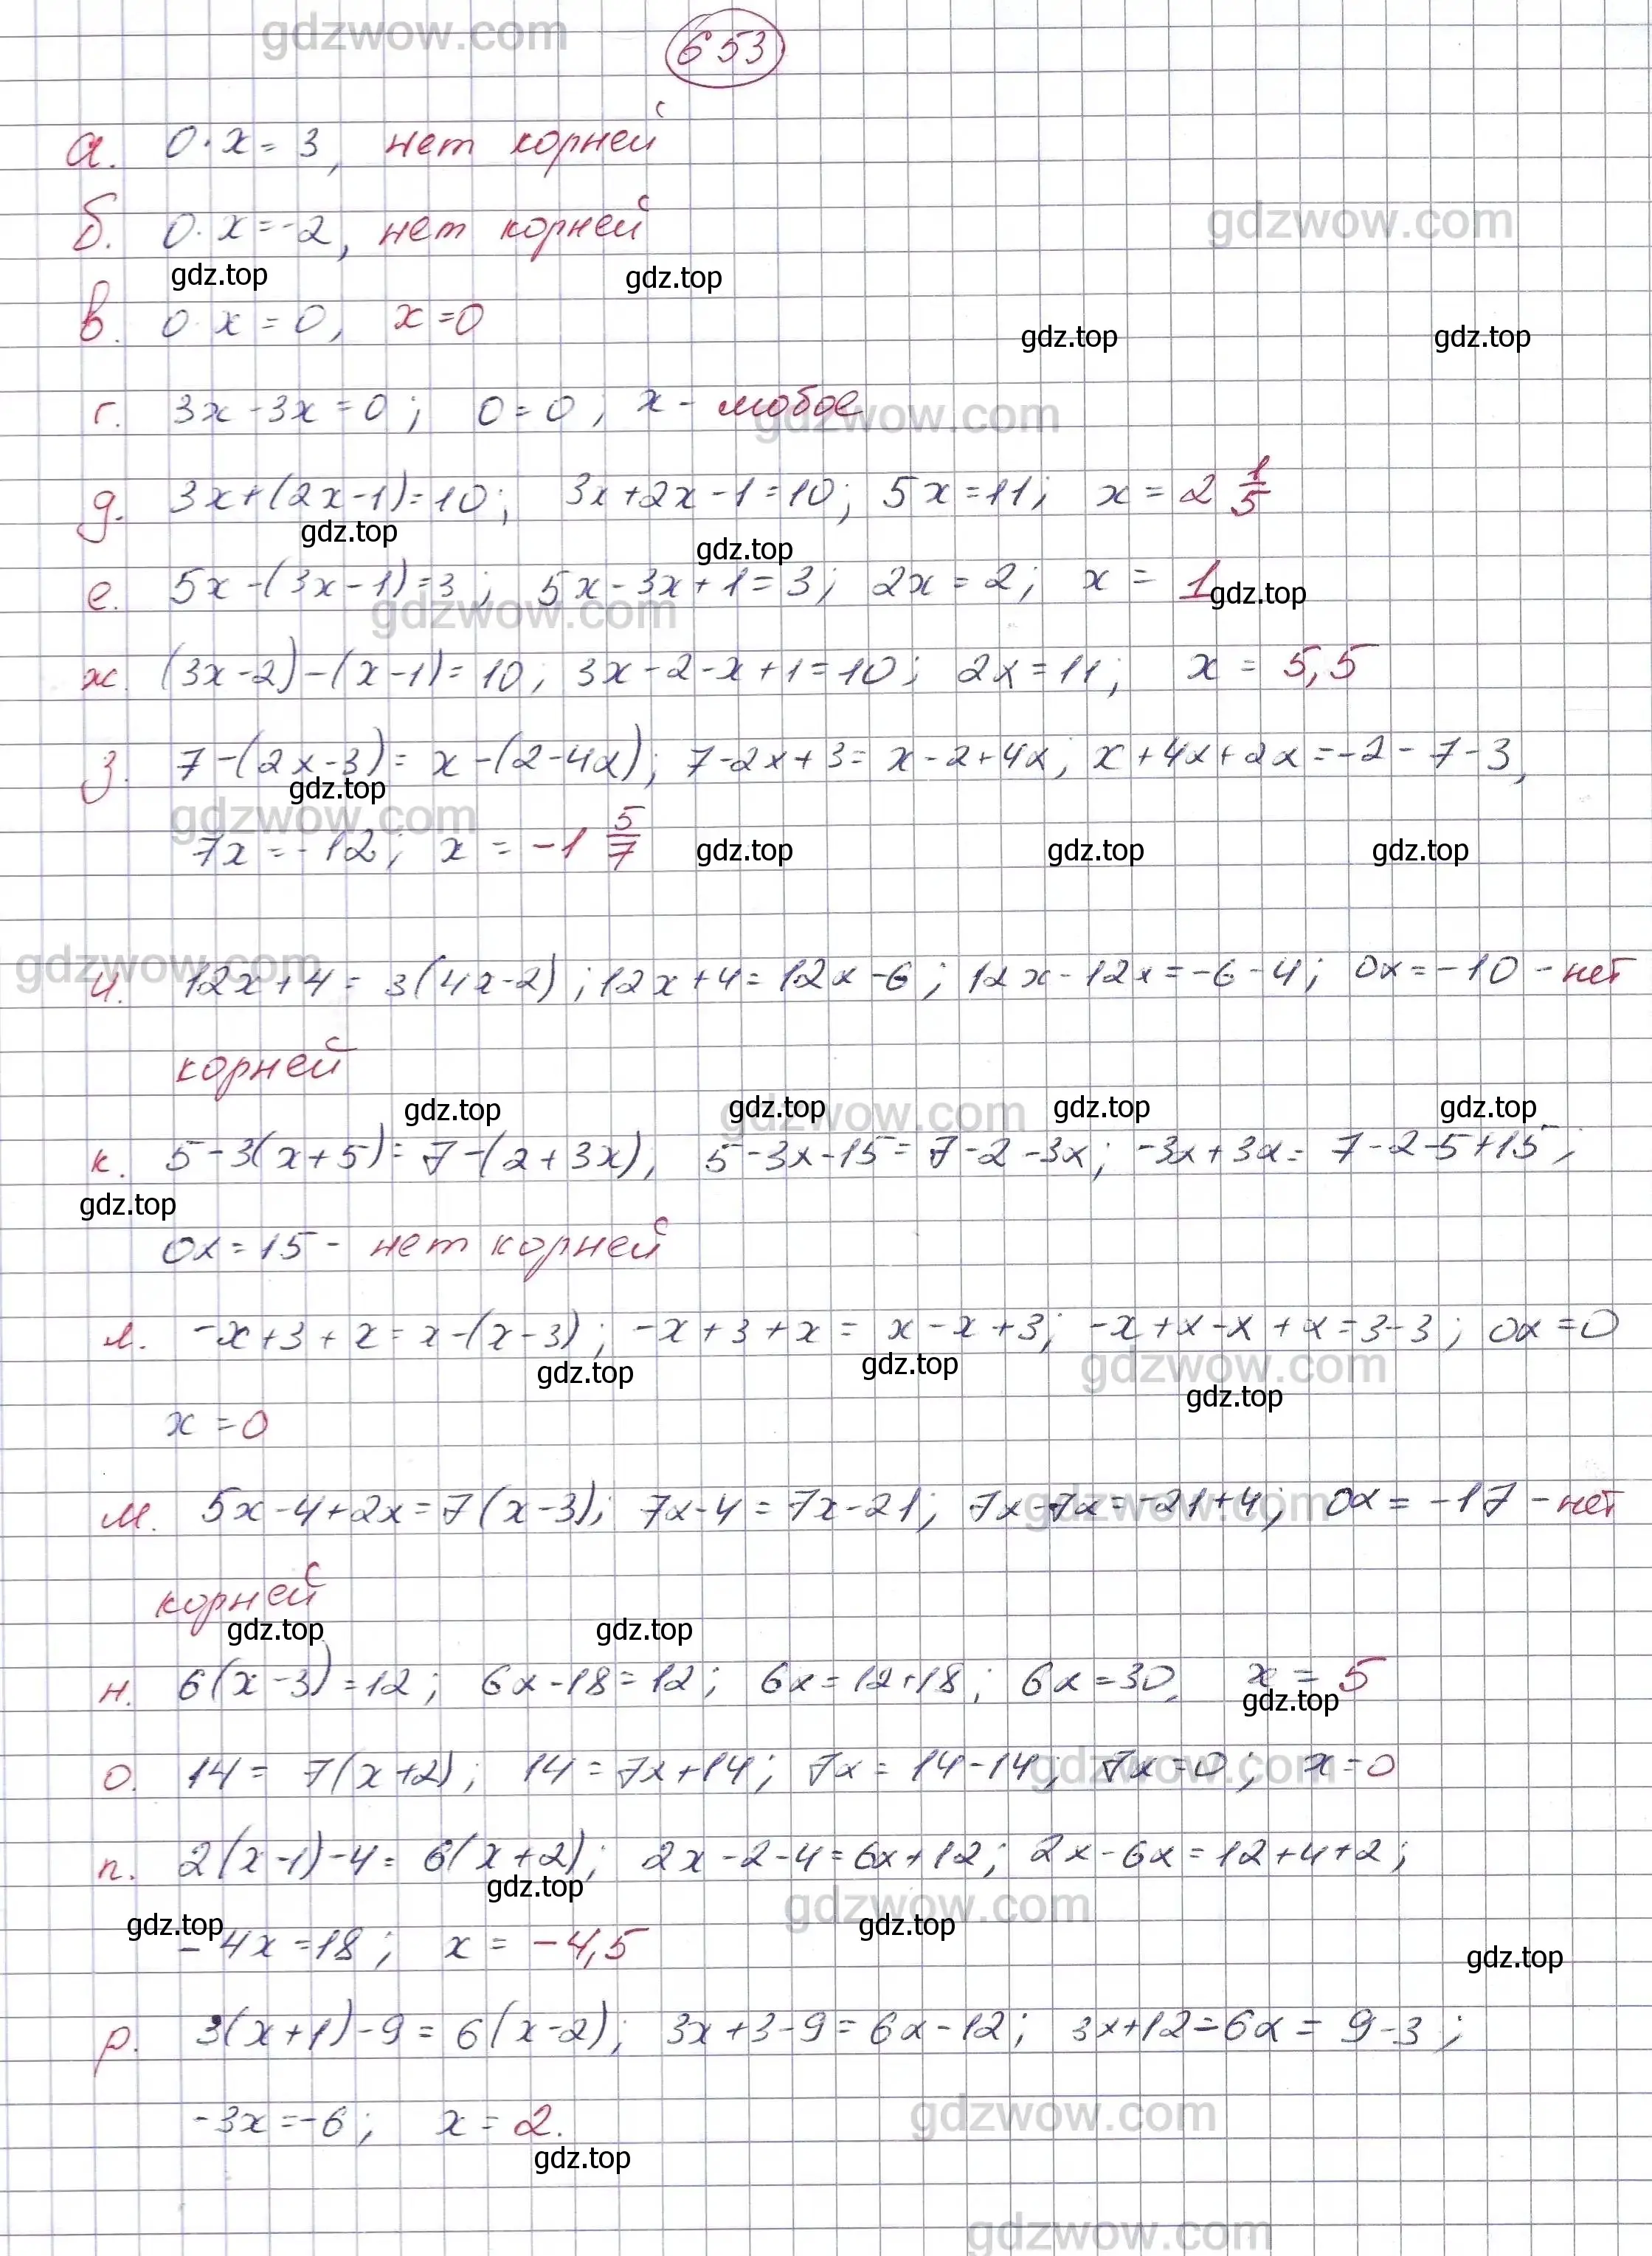 gdzwow.com
653
а. 0·x=3, нет корней
б. 0·x=-2, нет корней
gdzwow.com
gdz.top gdz.top
в. 0·x=0, x=0
gdz.top gdz.top
г. 3x-3x=0; 0=0, x- любое
gdzwow.com
д. 3x+(2x-1)=10; 3x+2x-1=10; 5x=11; x=2 1/5
gdz.top gdz.top
е. 5x-(3x-1)=3; 5x-3x+1=3; 2x=2; x=1
gdz.top
gdzwow.com
ж. (3x-2)-(x-1)=10; 3x-2-x+1=10; 2x=11; x=5,5
з. 7-(2x-3)=x-(2-4x); 7-2x+3=x-2+4x; x+4x+2x=-2-7-3,
gdz.top
gdzwow.com
7x=-12; x=-1 5/7
gdz.top gdz.top gdz.top
gdzwow.com
и. 12x+4=3(4x-2); 12x+4=12x-6; 12x-12x=-6-4; 0x=-10 - нет
корней
gdz.top gdz.top gdz.top gdz.top
gdzwow.com
к. 5-3(x+5)=7-(2+3x), 5-3x-15=7-2-3x; -3x+3x=7-2-5+15;
gdz.top
0x=15 - нет корней
л. -x+3+x=x-(x-3); -x+3+x=x-x+3; -x+x-x+x=3-3; 0x=0
gdz.top gdz.top gdzwow.com
gdz.top
x=0
м. 5x-4+2x=7(x-3); 7x-4=7x-21; 7x-7x=-21+4; 0x=-17 - нет
gdzwow.com
корней
gdz.top gdz.top
н. 6(x-3)=12; 6x-18=12; 6x=12+18; 6x=30, x=5
gdz.top
о. 14=7(x+2); 14=7x+14; 7x=14-14; 7x=0; x=0
gdzwow.com
п. 2(x-1)-4=6(x+2); 2x-2-4=6x+12; 2x-6x=12+4+2;
gdz.top
gdzwow.com
gdz.top gdz.top
-4x=18; x=-4,5
gdz.top
р. 3(x+1)-9=6(x-2); 3x+3-9=6x-12; 3x+12=6x=9-3;
-3x=-6; x=2.
gdzwow.com
gdz.top
gdzwow.com